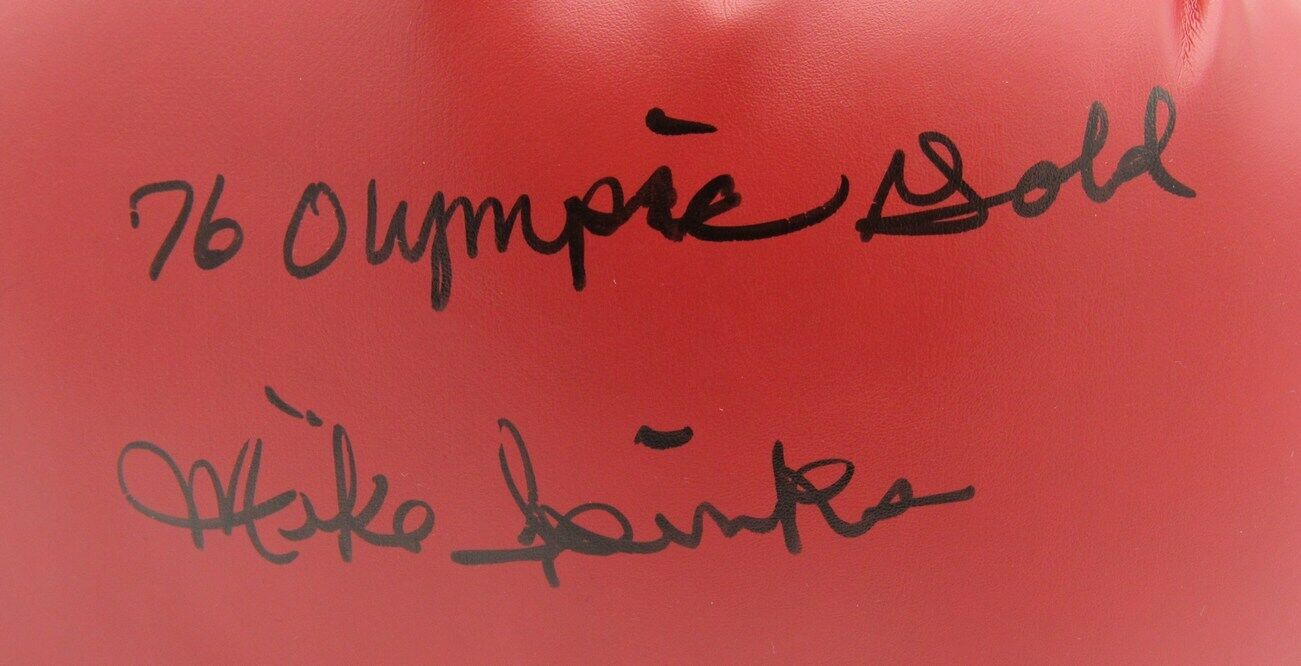 76 Olympic Gold
Mike Spinks